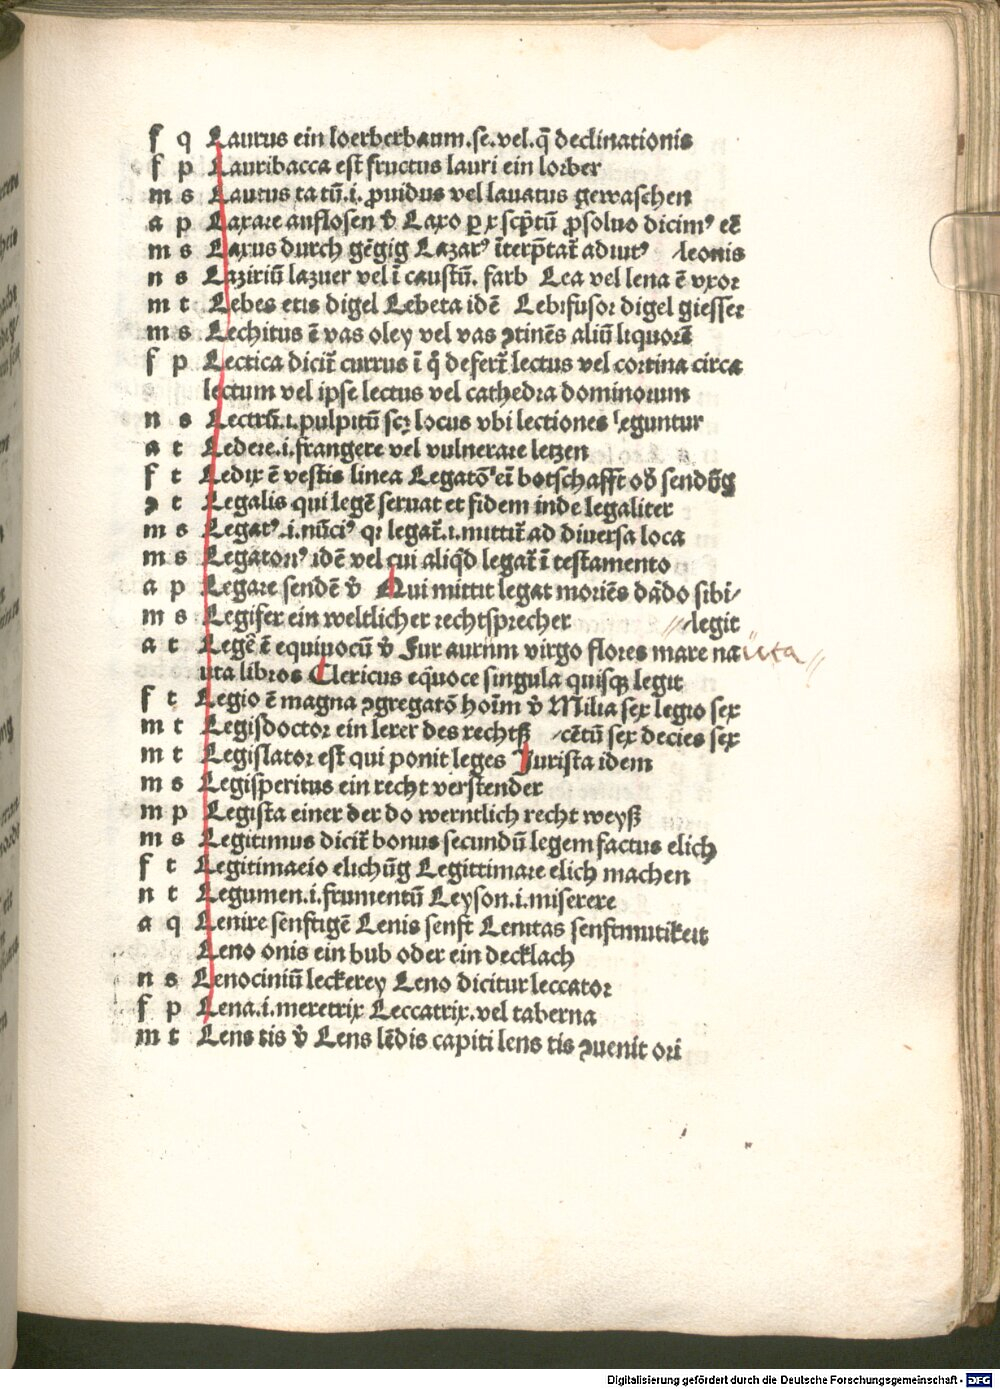 f q Laurus ein loerberbaum.se.vel.q̄ declinationis
f p Lauribacca est fructus lauri ein lorber
m s Lautus ta tū.i. ꝓuidus vel lauatus gewaschen
a p Laxare auflosen v̄ Laxo ꝑ x scp̄tū ꝓsoluo dicimꝰ eē
m s Laxus durch gēgig Lazarꝰ īterp̄tat̄ adiutꝰ leonis
n s Laziriū lazuer vel ī caustū. farb Lea vel lena ē vxor
m t Lebes etis digel Lebeta idē Lebifusor digel giesser
m s Lechitus ē vas oley vel vas ꝯtinēs aliū liquorē
f p Lectica dicit̄ currus ī q̄ defert̄ lectus vel cortina circa
lectum vel ipse lectus vel cathedra dominorum
n s Lectrū.i.pulpitū scꝫ locus vbi lectiones leguntur
a t Ledere.i.frangere vel vulnerare letzen
f t Ledix ē vestis linea Legatō eī botschafft od̄ sendūg
ꝯ t Legalis qui legē seruat et fidem inde legaliter
m s Legatꝰ.i.nūciꝰ qꝛ legat̄.i.mittit̄ ad diuersa loca
m s Legatonꝰ idē vel cui aliq̄d legat̄ ī testamento
a p Legare sendē v̄ Qui mittit legat moriēs dādo sibi/
m s Legifer ein weltlicher rechtsprecher // legit
a t Legē ē equiuocū v̄ Fur aurum virgo flores mare na uita //
uta libros Clericus eq̄uoce singula quisqꝫ legit
f t Legio ē magna ꝯgregatō hoīm v̄ Milia sex legio sex
m t Legisdoctor ein lerer des rechtß cētū sex decies sex
m t Legislator est qui ponit leges Jurista idem
m s Legisperitus ein recht verstender
m p Legista einer der do werntlich recht weyß
m s Legitimus dicit̄ bonus secundū legem factus elich
f t Legitimaeio elichūg Legittimare elich machen
n t Legumen.i.frumentū Leyson.i.miserere
a q Lenire senftigē Lenis senft Lenitas senftmutikeit
Leno onis ein bub oder ein decklach
n s Lenociniū leckerey Leno dicitur leccator
f p Lena.i.meretrix Leccatrix.vel taberna
m t Lens tis v̄ Lens lēdis capiti lens tis ꝯuenit ori
Digitalisierung gefördert durch die Deutsche Forschungsgemeinschaft - DFG